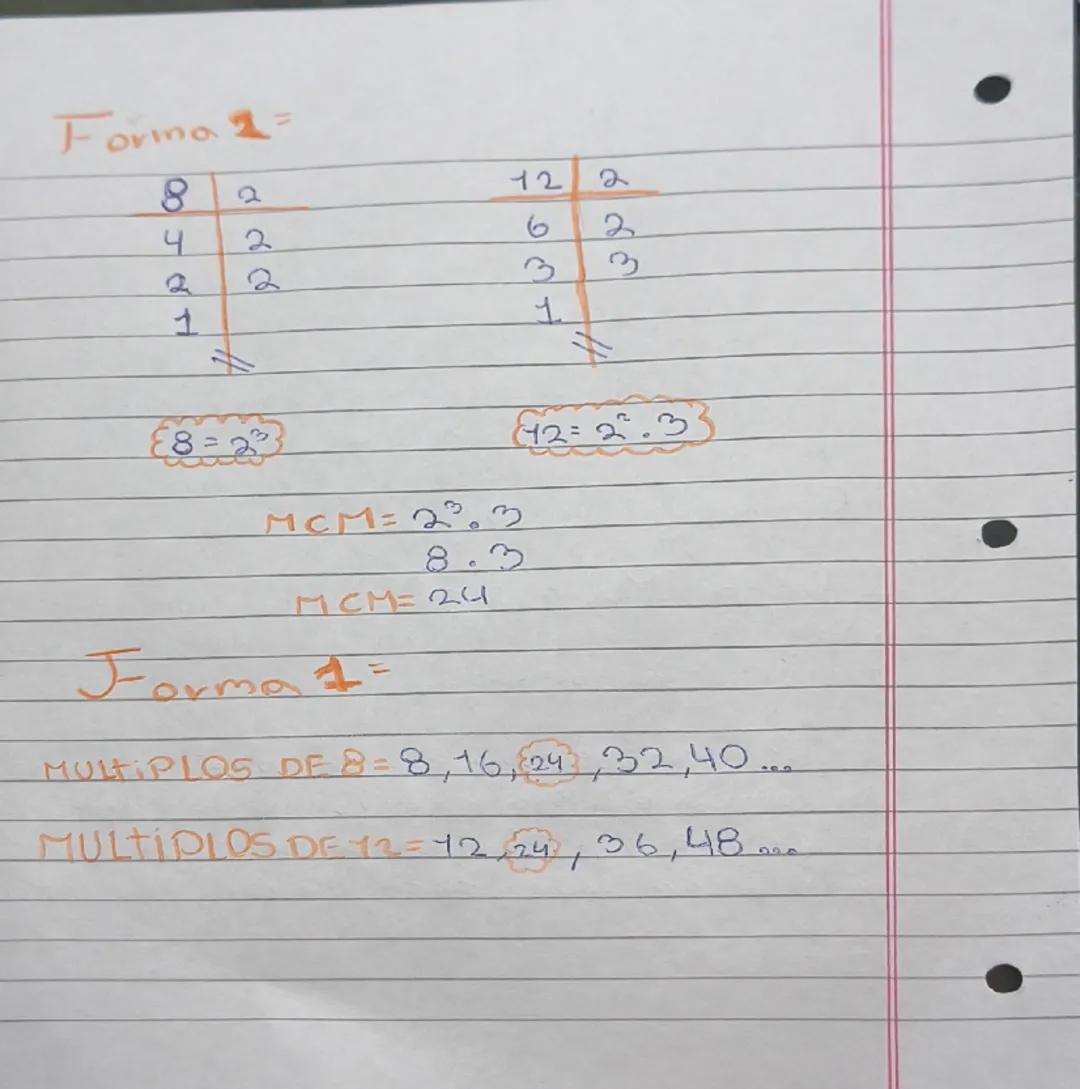 Forma 2=
8 | 2 12 | 2
4 | 2 6 | 2
2 | 2 3 | 3
1 | 1 |
8=2³ 12=2².3
MCM= 2³.3
8.3
MCM= 24
Forma 1=
MULTIPLOS DE 8= 8,16,24,32,40...
MULTIPLOS DE 12= 12,24, 36,48...